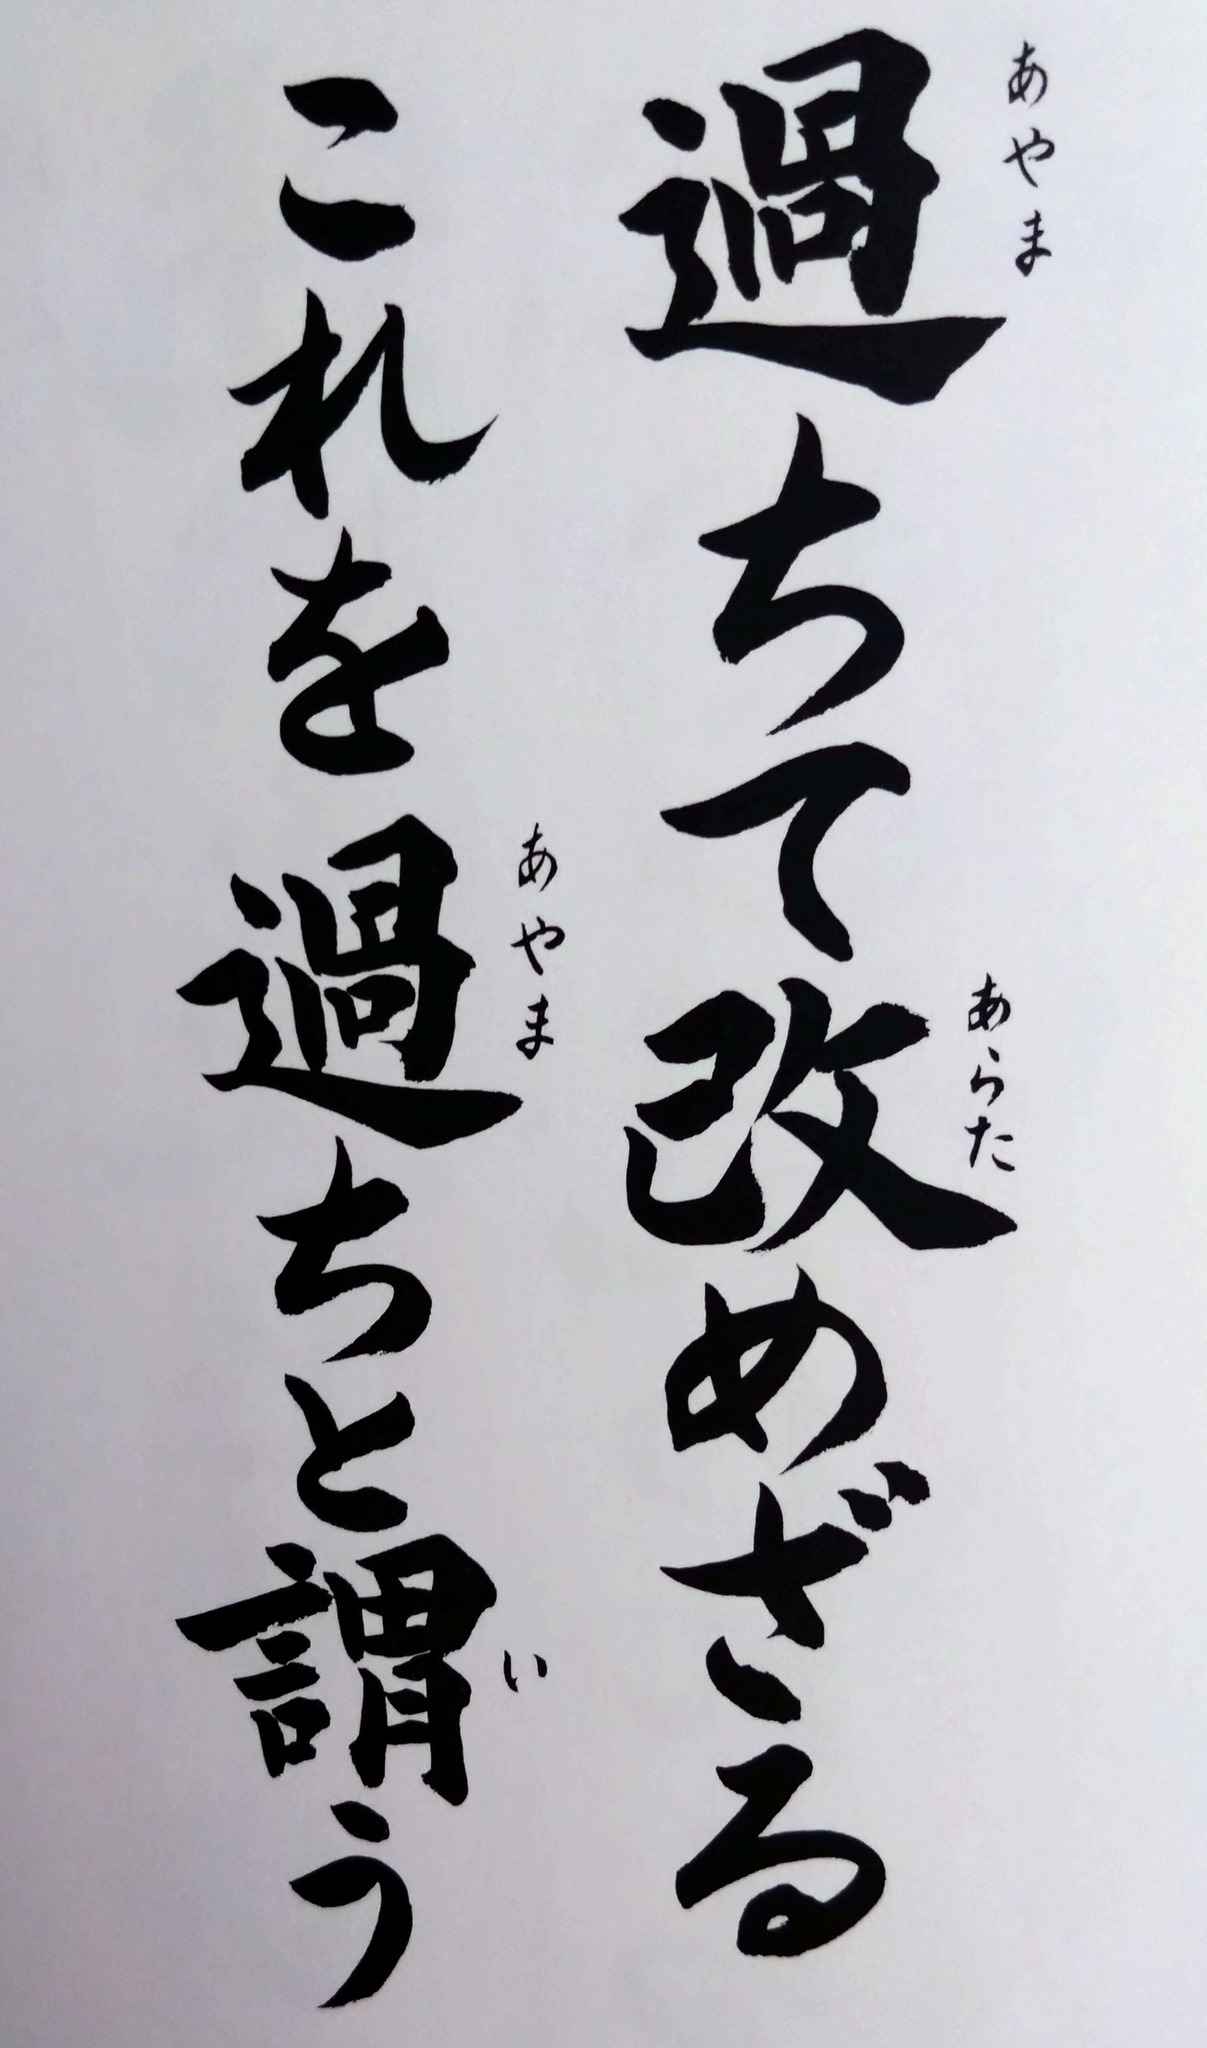 過ちて改めざる
あやま
あらた
これを過ちと謂う
あやま
い